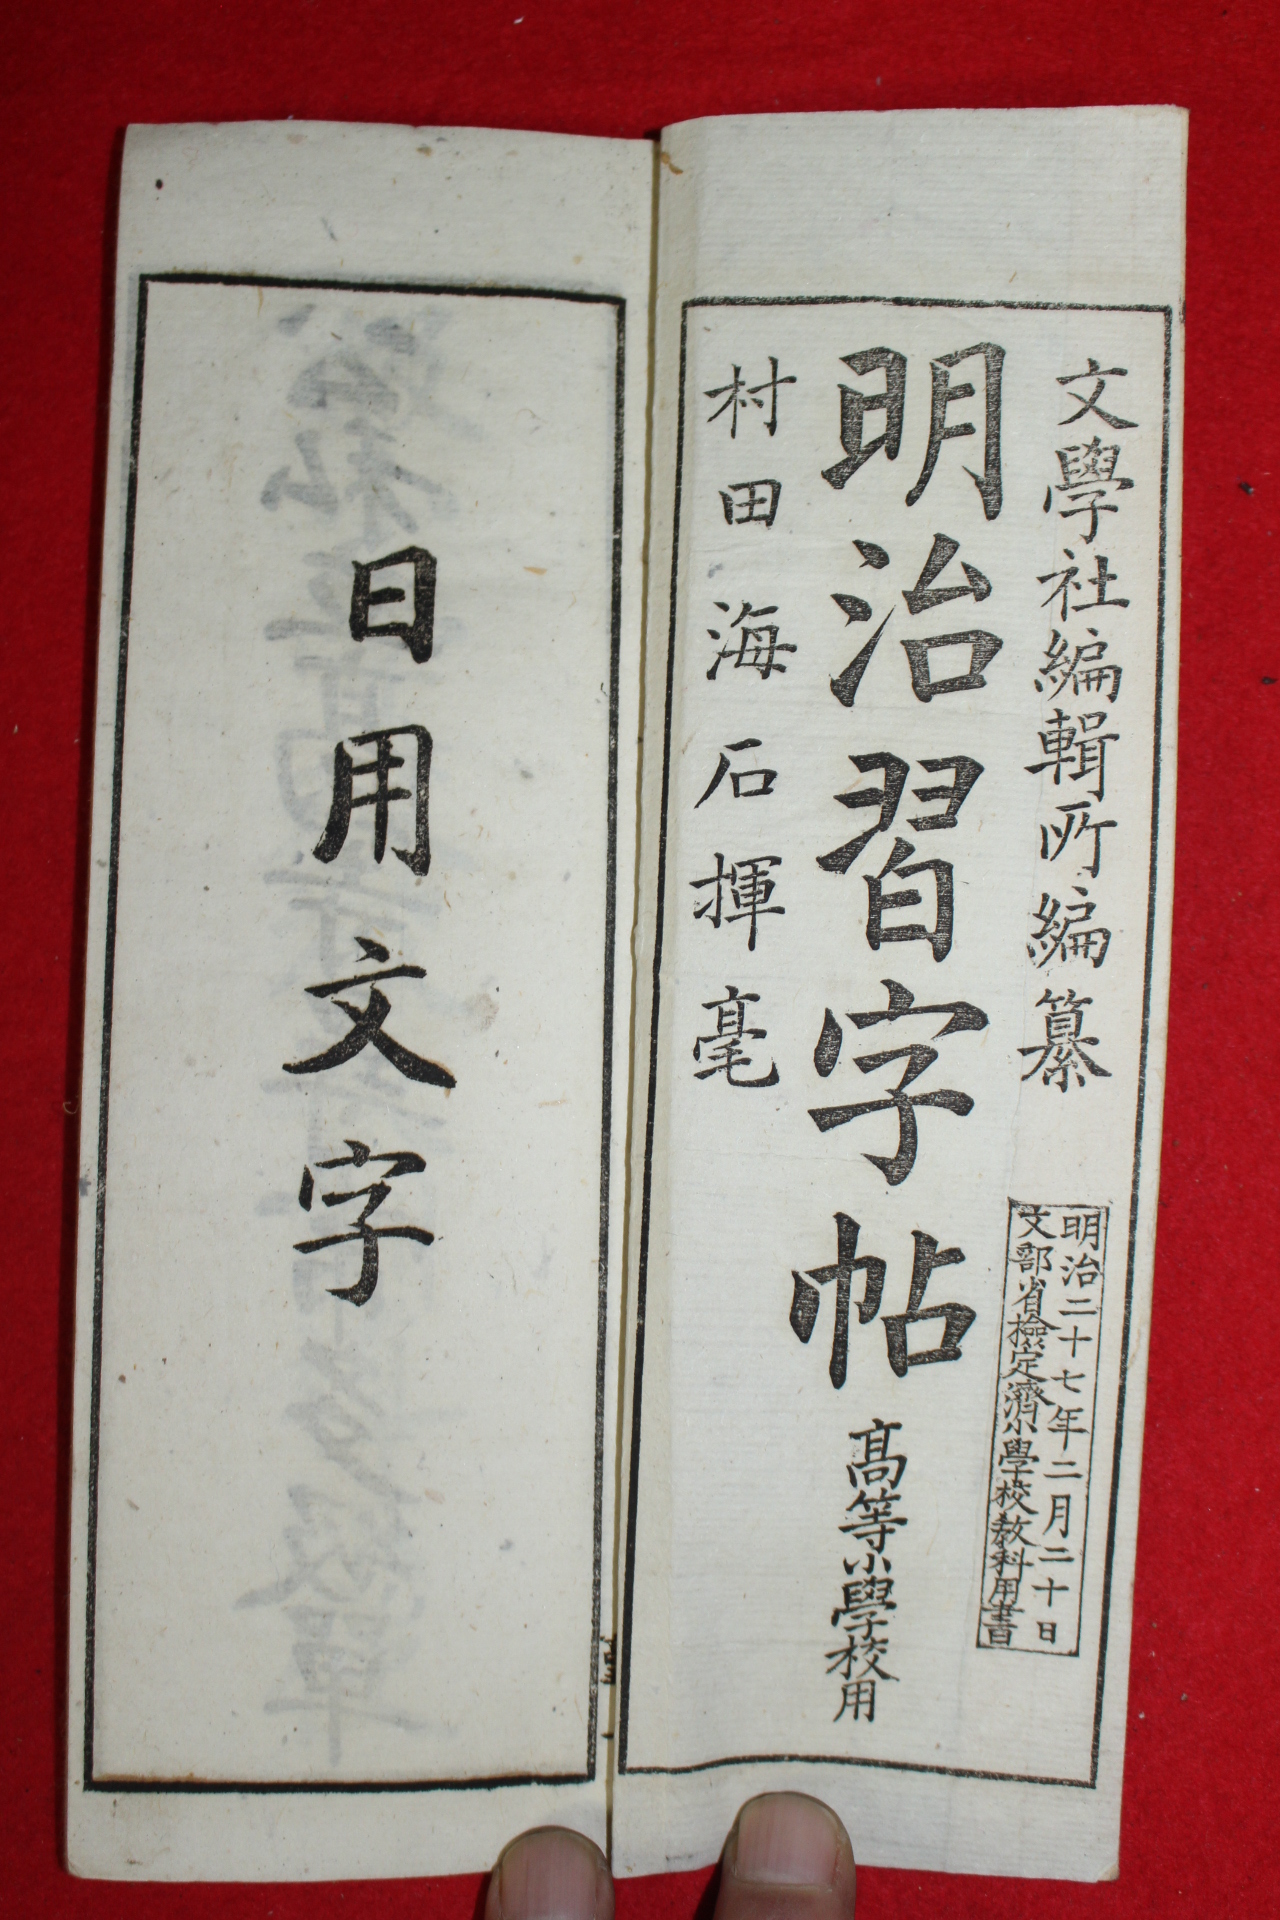 文學社編輯所編纂
明治二十七年二月二十日
文部省檢定濟小學校敎科用書
明治習字帖
高等小學校用
村田海石揮毫
日用文字